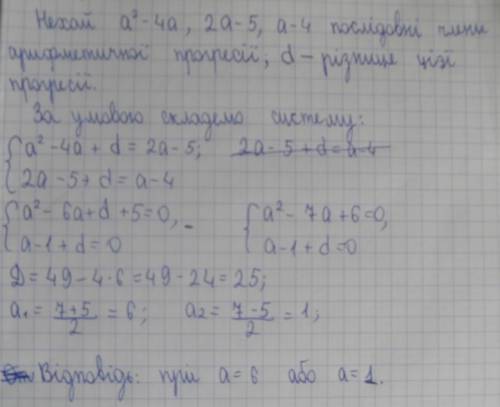 Нехай a²-4a, 2a-5, a-4 послідовні члени
арифметичної прогресії, d - різниця цієї
прогресії.
За умовою складемо систему:
{a²-4a+d=2a-5; 2a-5+d=a-4
{2a-5+d=a-4
{a²-6a+d+5=0, - {a²-7a+6=0,
{a-1+d=0 {a-1+d=0
D=49-4·6=49-24=25;
a₁=(7+5)/2=6; a₂=(7-5)/2=1;
Відповідь: при a=6 або a=1.